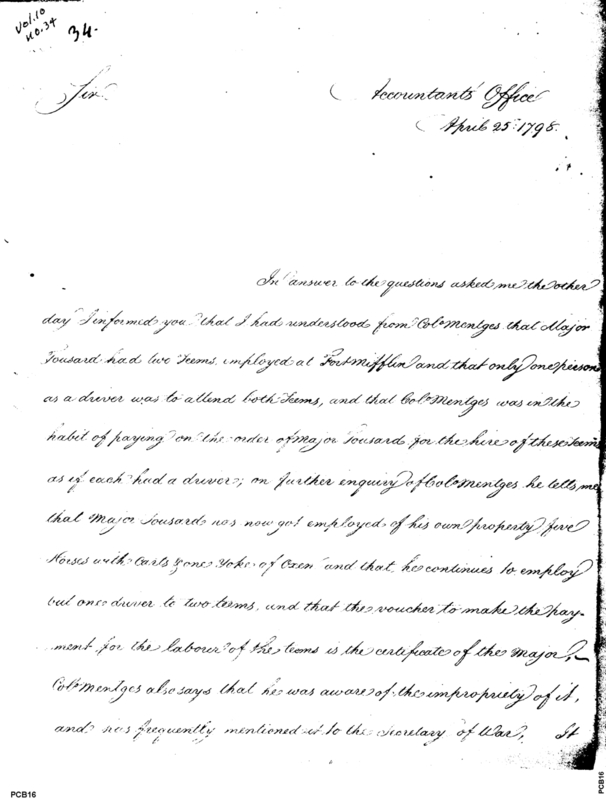 Vol.10
no.34
34.
Sir
Accountants Office
April 25th 1798.
In answer to the questions asked me the other
day I informed you that I had understood from Colo Mentges that Major
Tousard had two Teems employed at Fort Mifflin and that only one person
as a driver was to attend both Teems, and that Colo Mentges was in the
habit of paying on the order of Major Tousard for the hire of these Teems
as if each had a driver; on further enquiry of Colo Mentges he tells me
that Major Tousard has now got employed of his own property five
Horses with Carts & one Yoke of Oxen and that he continues to employ
but one driver to two teems, and that the voucher to make the pay-
ment for the labour of the teems is the certificate of the Major,
Colo Mentges also says that he was aware of the impropriety of it,
and has frequently mentioned it to the Secretary of War, It
PCB16
PCB16